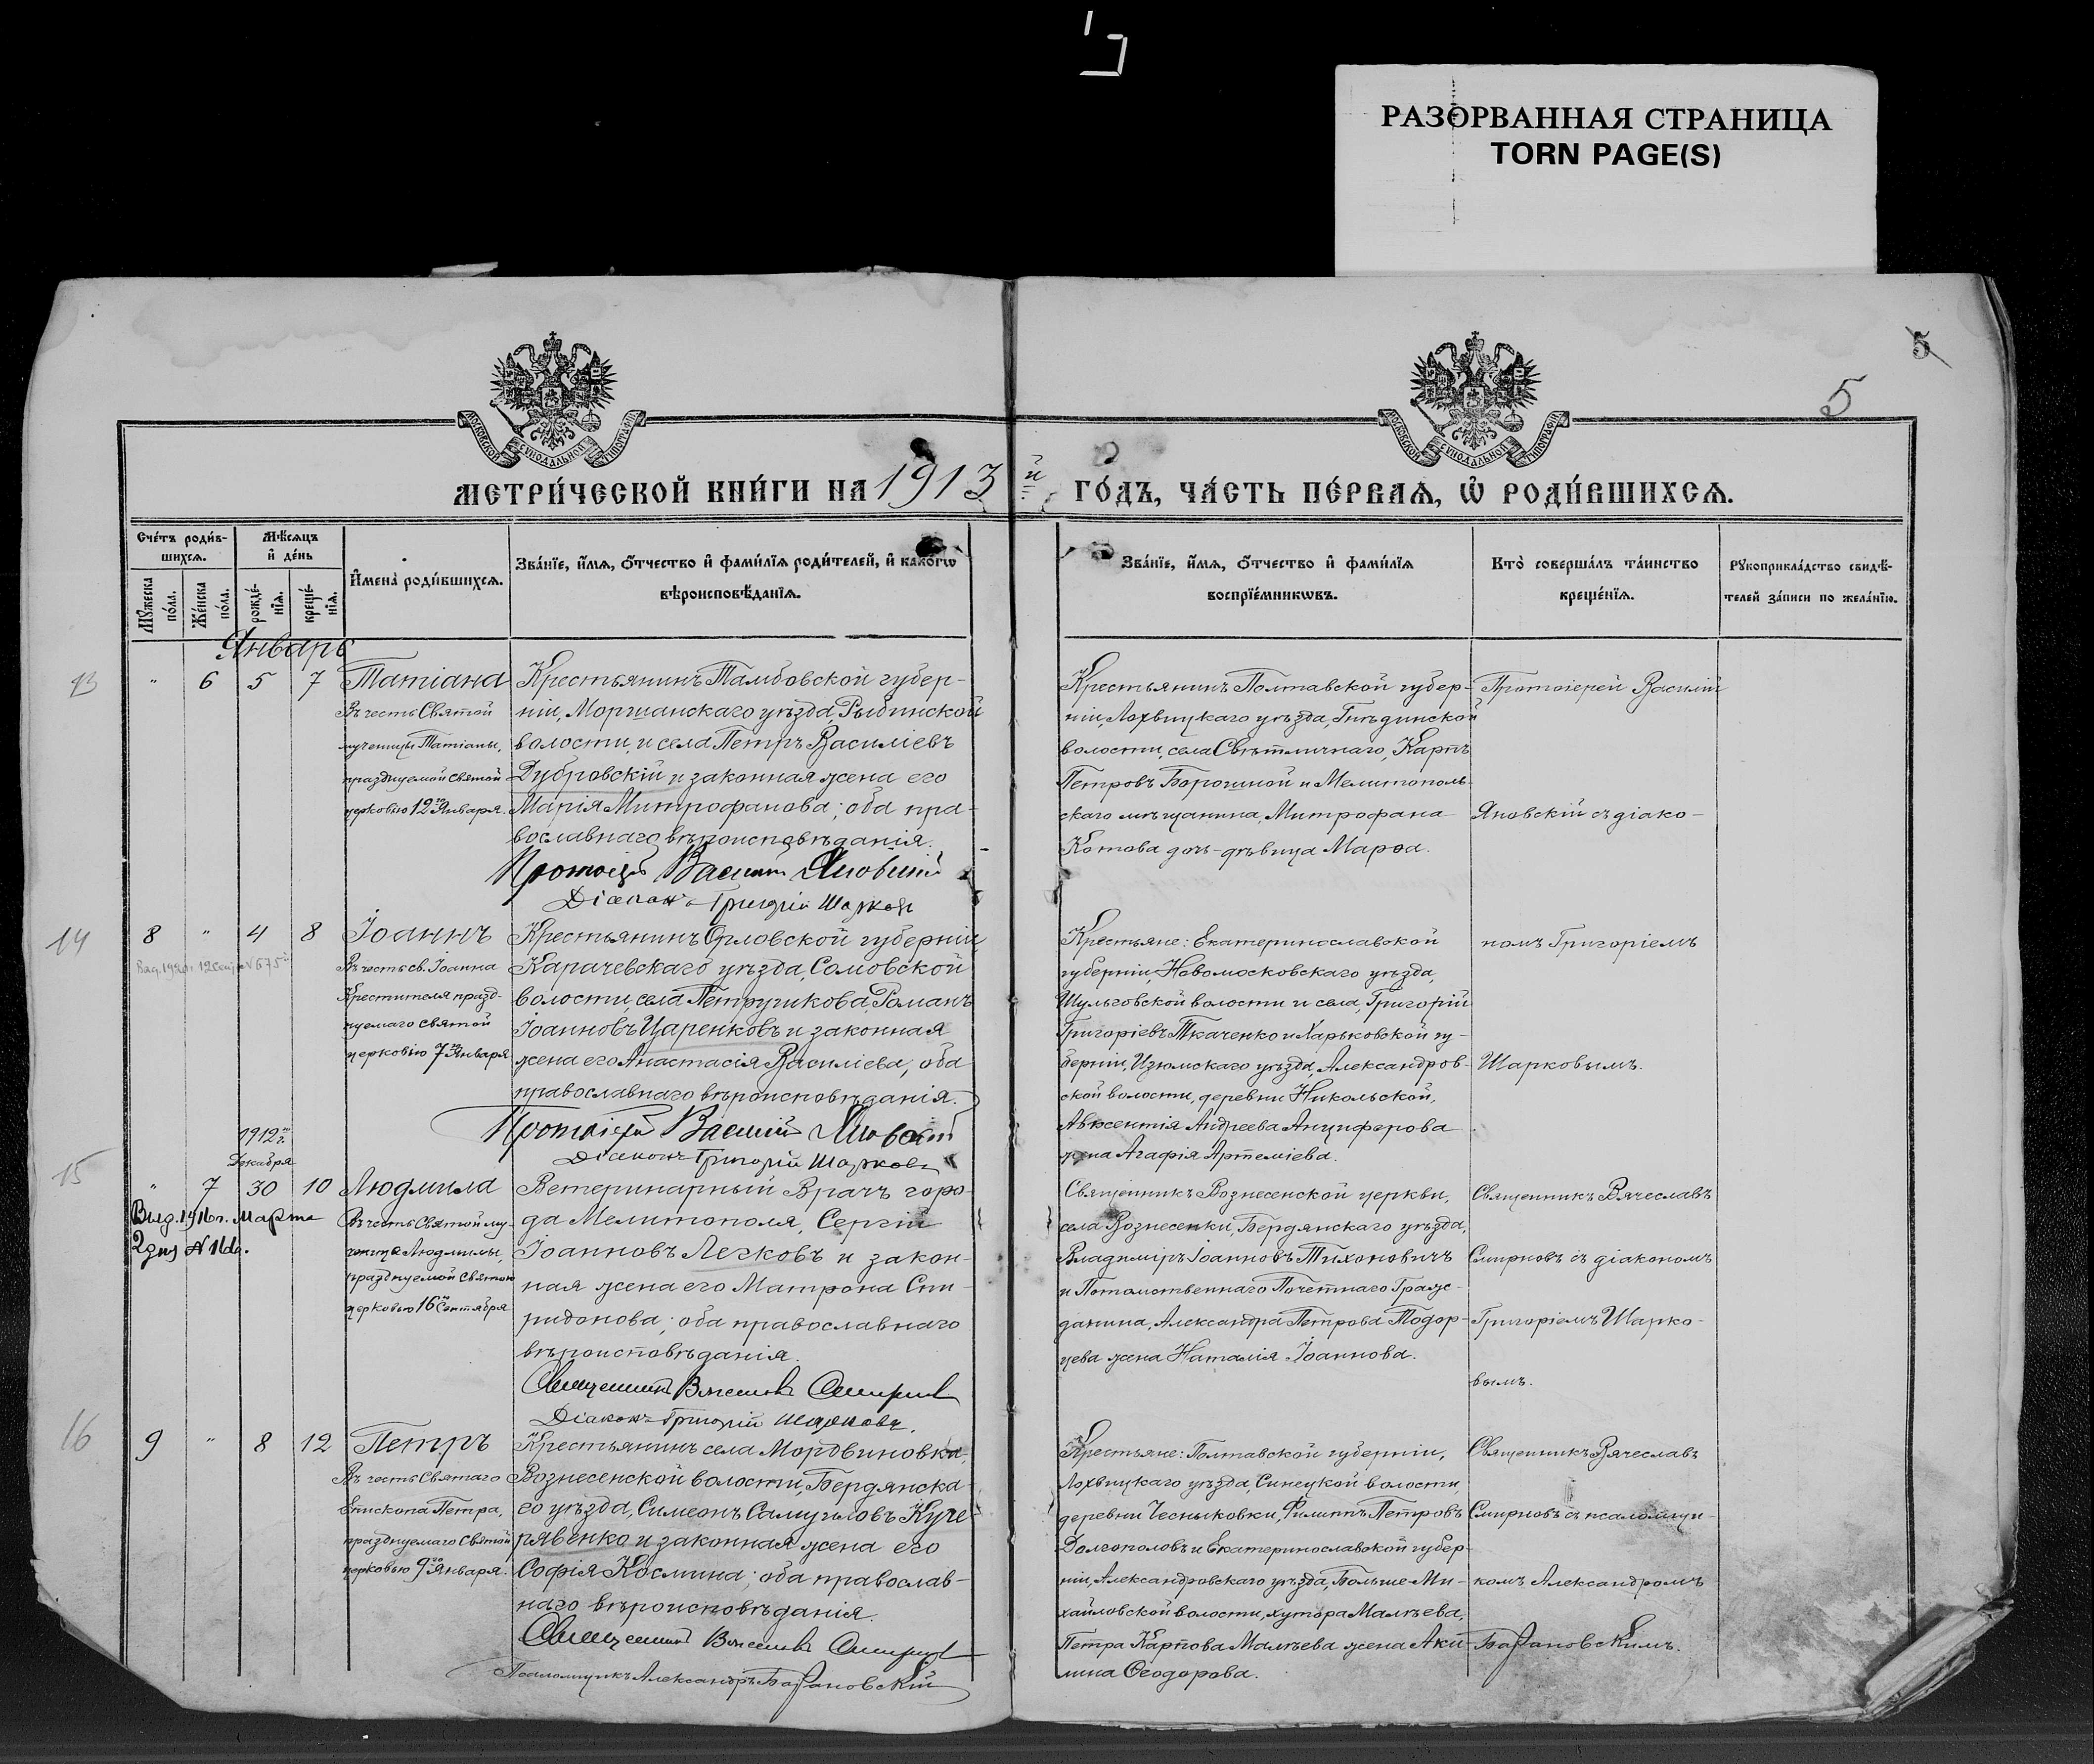 РАЗОРВАННАЯ СТРАНИЦА
TORN PAGE(S)
5
5
МОСКОВСКОЙ СѴНОДАЛЬНОЙ ТИПОГРАФІИ
МОСКОВСКОЙ СѴНОДАЛЬНОЙ ТИПОГРАФІИ
МЕТРИ́ЧЕСКОЙ КНИ́ГИ НА 1913 й ГО́ДЪ, ЧА́СТЬ ПЕ́РВАѦ, Ѡ҆ РОДИ́ВШИХСѦ.
Сче́тъ роди́в-
шихсѧ.
Мѣ́сѧцъ
и҆ де́нь
Мꙋ́жеска
по́ла.
Же́нска
по́ла.
рожде́-
нїѧ.
креще́-
нїѧ.
И҆мена̀ роди́вшихсѧ.
Зва́нїе, и҆́мѧ, ѻ҆́тчество и҆ фами́лїѧ роди́телей, и҆ како́гѡ
вѣроисповѣ́данїѧ.
Зва́нїе, и҆́мѧ, ѻ҆́тчество и҆ фами́лїѧ
воспрїе́мникѡвъ.
Кто̀ соверша́лъ та́инство
креще́нїѧ.
Рꙋкоприкла́дство свидѣ́-
телей за́писи по жела́нїю.
Январь
13
" 6 5 7
Татіана
Въ честь Святой
мученицы Татіаны,
празднуемой святой
церковью 12го Января.
Крестьянинъ Тамбовской губер-
ніи, Моршанскаго уѣзда, Рыбинской
волости и села Петръ Василіевъ
Дубровскій и законная жена его
Марія Митрофанова; оба пра-
вославнаго вѣроисповѣданія.
Протоіерей Василій Яновскій
Діаконъ Григорій Шарковъ
Крестьянинъ Полтавской губер-
ніи, Лохвицкаго уѣзда, Гнѣдинской
волости, села Свѣтличнаго, Карпъ
Петровъ Борошной и Мелитополь-
скаго мѣщанина, Митрофана
Котова дочь-дѣвица Марѳа.
Протоіерей Василій
Яновскій съ діако-
14
8 " 4 8
Іоаннъ
Въ честь св. Іоанна
Крестителя празд-
нуемаго святой
церковію 7го Января
Крестьянинъ Орловской губерніи
Карачевскаго уѣзда, Сомовской
волости, села Петрушкова, Романъ
Іоанновъ Царенковъ и законная
жена его Анастасія Василіева, оба
православнаго вѣроисповѣданія.
Протоіерей Василій Яновскій
Діаконъ Григорій Шарковъ
Крестьяне: Екатеринославской
губерніи, Новомосковскаго уѣзда,
Шульговской волости и села, Григорій
Григоріевъ Ткаченко и Харьковской гу-
берніи, Изюмскаго уѣзда, Александров-
ской волости, деревни Никольской,
Авксентія Андреева Анциферова
жена Агафія Артеміева.
номъ Григоріемъ
Шарковымъ.
15
1912 г.
Декабря
" 7 30 10
Выд. 1916 г. Марта
2 дня №
Людмила
Въ честь Святой му-
ченице Людмилы,
празднуемой святою
церковью 16го Сентября
Ветеринарный Врачъ горо-
да Мелитополя, Сергій
Іоанновъ Легковъ и закон-
ная жена его Матрона Спи-
ридонова; оба православнаго
вѣроисповѣданія.
Священникъ Вячеславъ Смирновъ
Діаконъ Григорій Шарковъ.
Священникъ Вознесенской церкви,
села Вознесенки, Бердянскаго уѣзда,
Владиміръ Іоанновъ Тихоновичъ
и Потомственнаго Почетнаго Граж-
данина, Александра Петрова Тодор-
цева жена Наталія Іоаннова.
Священникъ Вячеславъ
Смирновъ съ діакономъ
Григоріемъ Шарко-
вымъ.
16
9 " 8 12
Петръ
Въ честь Святаго
Епископа Петра,
празднуемаго Святой
церковью 9го Января.
Крестьянинъ села Мордвиновка,
Вознесенской волости, Бердянска-
го уѣзда, Симеонъ Самуиловъ Куче-
рявенко и законная жена его
Софія Космина; оба православ-
наго вѣроисповѣданія.
Священникъ Вячеславъ Смирновъ
Псаломщикъ Александръ Барановскій
Крестьяне: Полтавской губерніи,
Лохвицкаго уѣзда, Синецкой волости,
деревни Чесныковки, Филиппъ Петровъ
Долгополовъ и Екатеринославской губер-
ніи, Александровскаго уѣзда, Больше Ми-
хайловской волости, хутора Малѣева,
Петра Карпова Малѣева жена Аки-
лина Ѳеодорова.
Священникъ Вячеславъ
Смирновъ съ псаломщи-
комъ Александромъ
Барановскимъ.